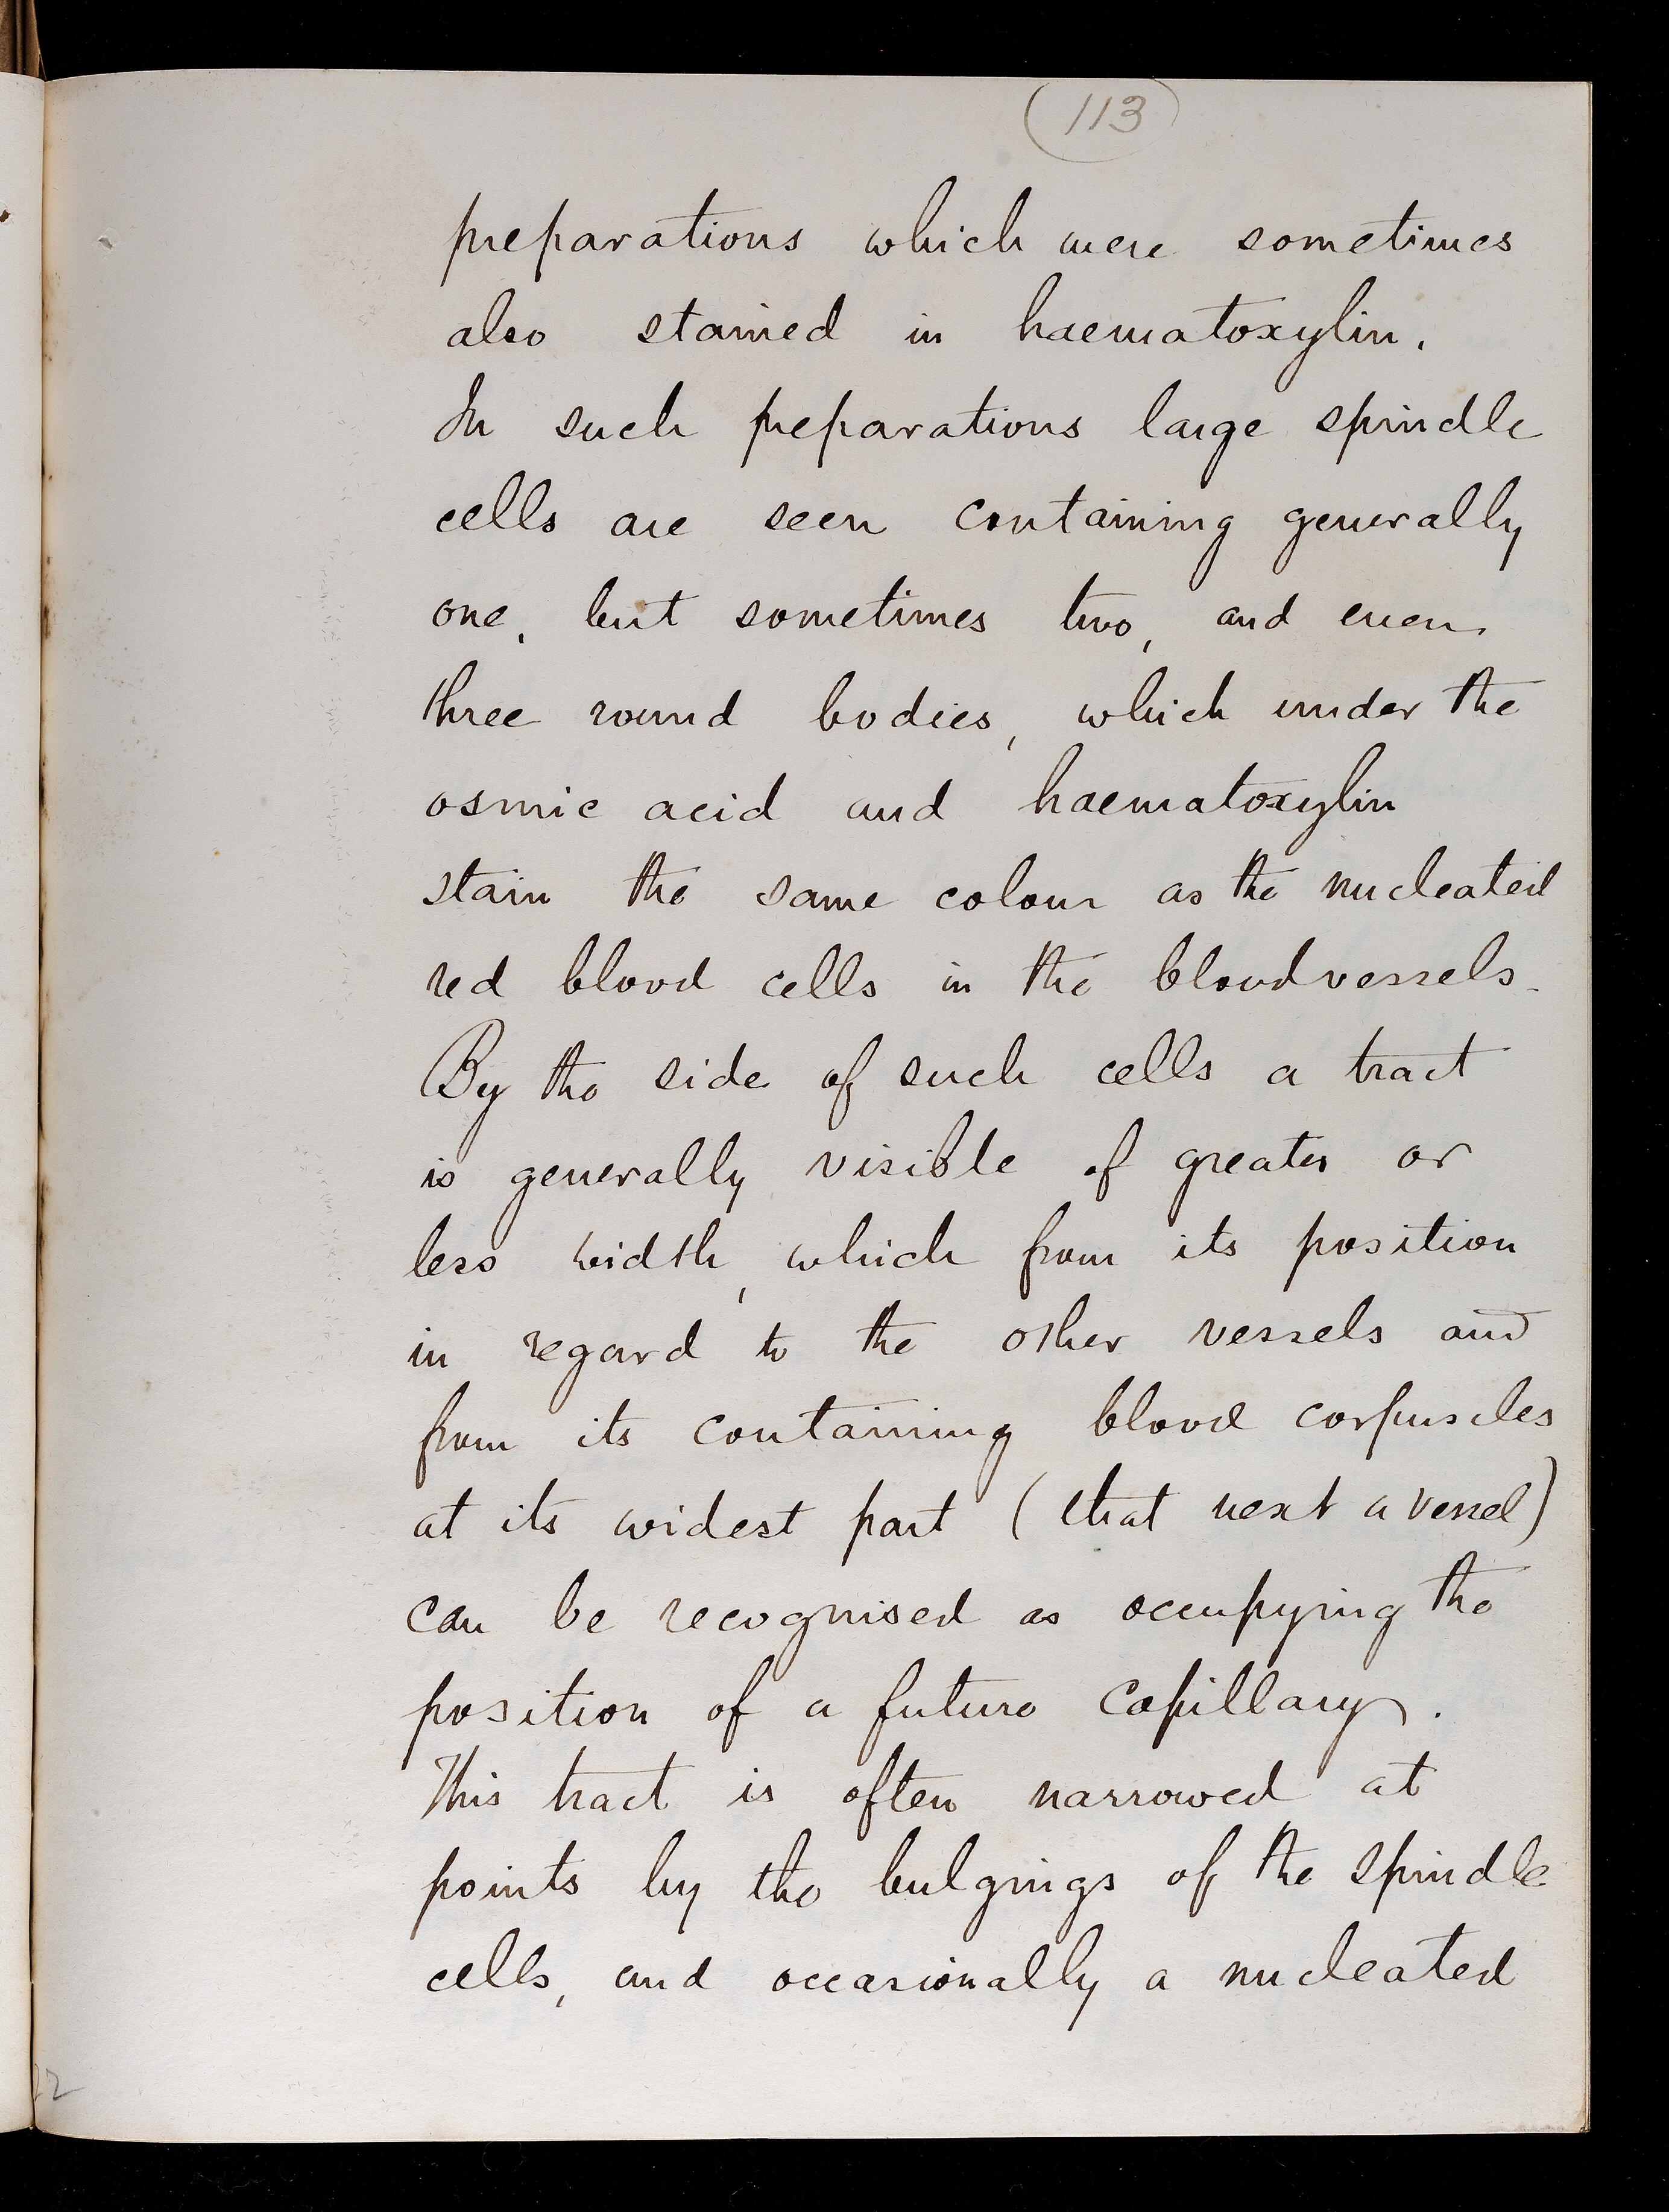 (113)
preparations which were sometimes
also stained in haematoxylin.
In such preparations large spindle
cells are seen containing generally
one, but sometimes two, and even
three round bodies, which under the
osmic acid and haematoxylin
stain the same colour as the nucleated
red blood cells in the bloodvessels.
By the side of such cells a tract
is generally visible of greater or
less width, which from its position
in regard to the other vessels and
from its containing blood corpuscles
at its widest part (that next a vessel)
can be recognised as occupying the
position of a future capillary.
This tract is often narrowed at
points by the bulgings of the spindle
cells, and occasionally a nucleated